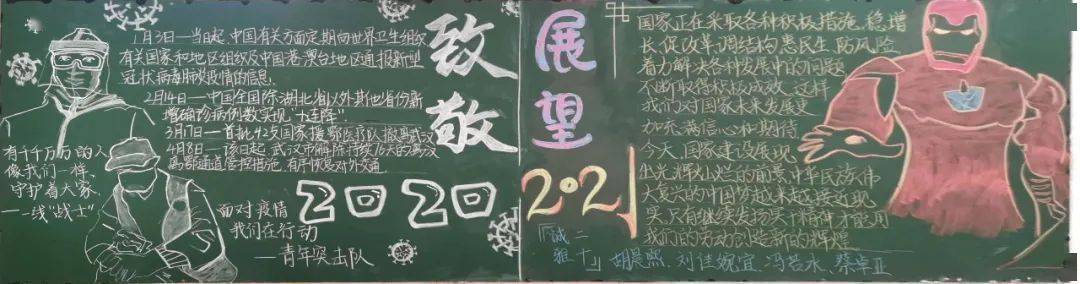 1月3日——当日起,中国有关方面定期向世界卫生组织
有关国家和地区组织及中国港澳台地区通报新型
冠状病毒肺炎疫情的信息.
2月14日——中国全国除湖北省以外其他省份新
增确诊病例数实现"十连降"
3月17日——首批42支国家援鄂医疗队撤离武汉
4月8日——该日起,武汉市解除持续76天的离汉
离鄂通道管控措施,有序恢复对外交通
致敬
有千千万万的人
像我们一样,
守护着大家
——线"战士"
面对疫情
我们在行动
——青年突击队
2020
展望
2021
国家正在采取各种积极措施,稳增
长,促改革,调结构,惠民生,防风险
着力解决各种发展中的问题
不断取得积极成效,这样
我们对国家未来发展更
加充满信心和期待
今天,国家建设展现
出光辉灿烂的前景,中华民族伟
大复兴的中国梦越来越接近现
实,只有继续发扬实干精神才能用
我们的劳动创造新的辉煌
「诚二
雅十」胡晨熙、刘佳婉宜、冯若水、蔡卓亚